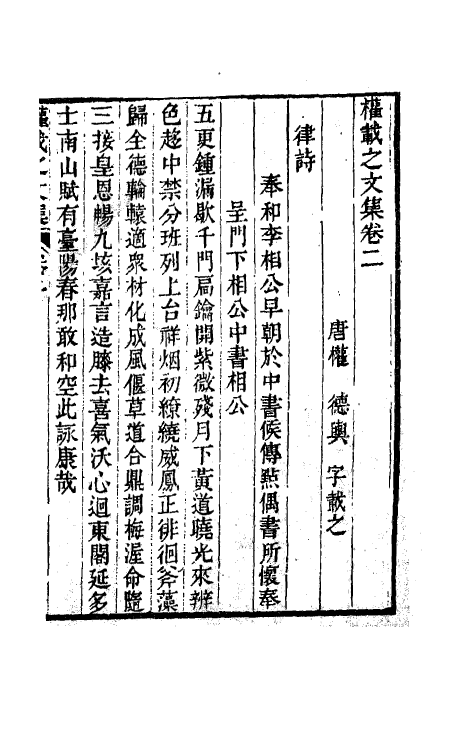 權載之文集卷二
唐權 德輿 字載之
律詩
奉和李相公早朝於中書候傳㸃偶書所懷奉
呈門下相公中書相公
五更鍾漏歇千門扃鑰開紫微殘月下黃道曉光來辨
色趍中禁分班列上台祥烟初繚繞威鳳正徘徊斧藻
歸全德輪轅適衆材化成風偃草道合鼎調梅渥命隨
三接皇恩暢九垓嘉言造膝去喜氣沃心迴東閣延多
士南山賦有臺陽春那敢和空此詠康哉